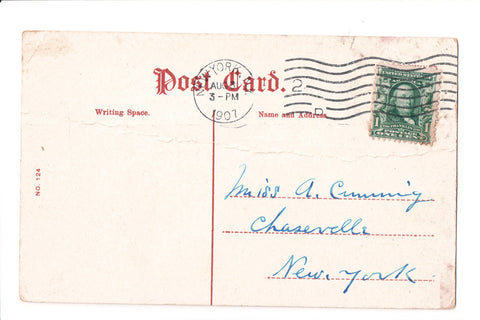 NEW YORK, N.Y.
AUG
3-PM
1907
2
D
Post Card.
Writing Space.
Name and Address.
NO. 124
1
Miss A. Cumming
Chaseville
New York